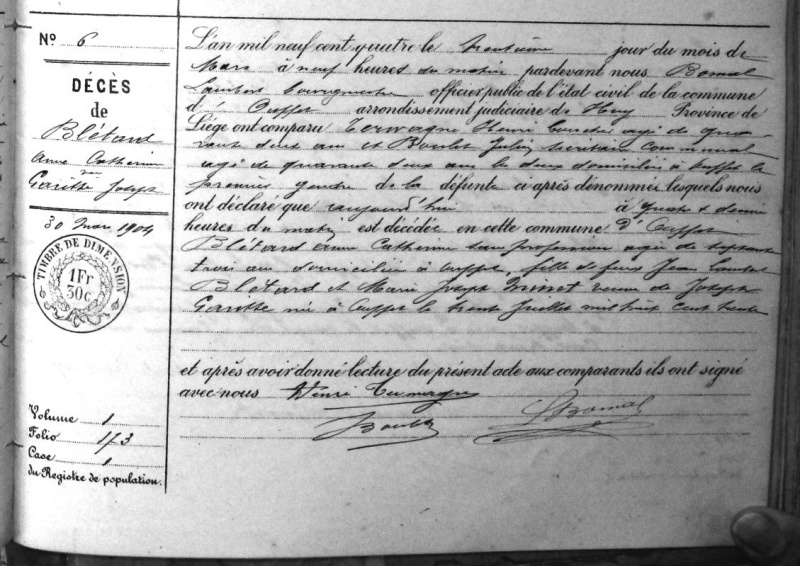 N° 6
DÉCÈS
de
Blétard
Anne Catherine
Garitte Joseph
30 Mars 1904
TIMBRE DE DIMENSION
1Fr
30c
Volume 1
Folio 43
Case 1
du Registre de population.
L'an mil neuf cent quatre le trentième jour du mois de
Mars à neuf heures du matin pardevant nous Bomal
Lambert bourgmestre officier public de l'état civil de la commune
d' Ouffet arrondissement judiciaire de Huy Province de
Liége ont comparu Terwagne Henri agé de qua-
rante deux ans et Boulet Julien secrétaire communal
agé de quarante deux ans les deux domiciliés à Ouffet le
premier gendre de la défunte ci après dénommée lesquels nous
ont déclaré que aujourd'hui à quatre & demie
heures du matin est décédée en cette commune d'Ouffet
Blétard Anne Catherine sans profession agée de septante
trois ans domiciliée à Ouffet, fille de feux Jean
Blétard et Marie Joseph Ninet veuve de Joseph
Garitte née à Ouffet le trente Juillet mil huit cent trente
et après avoir donné lecture du présent acte aux comparants ils ont signé
avec nous Henri Terwagne
Boulet LBomal